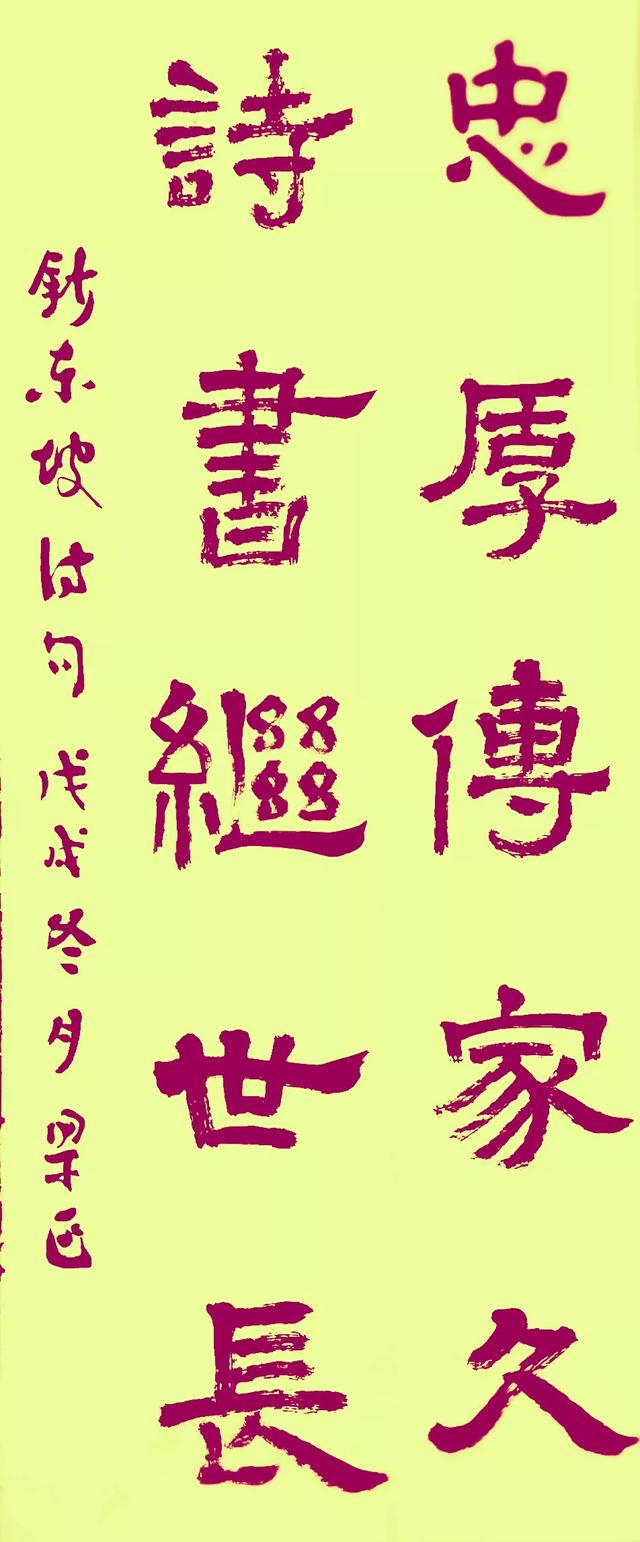 忠厚傳家久
詩書繼世長
錄东坡诗句 戊戌冬月